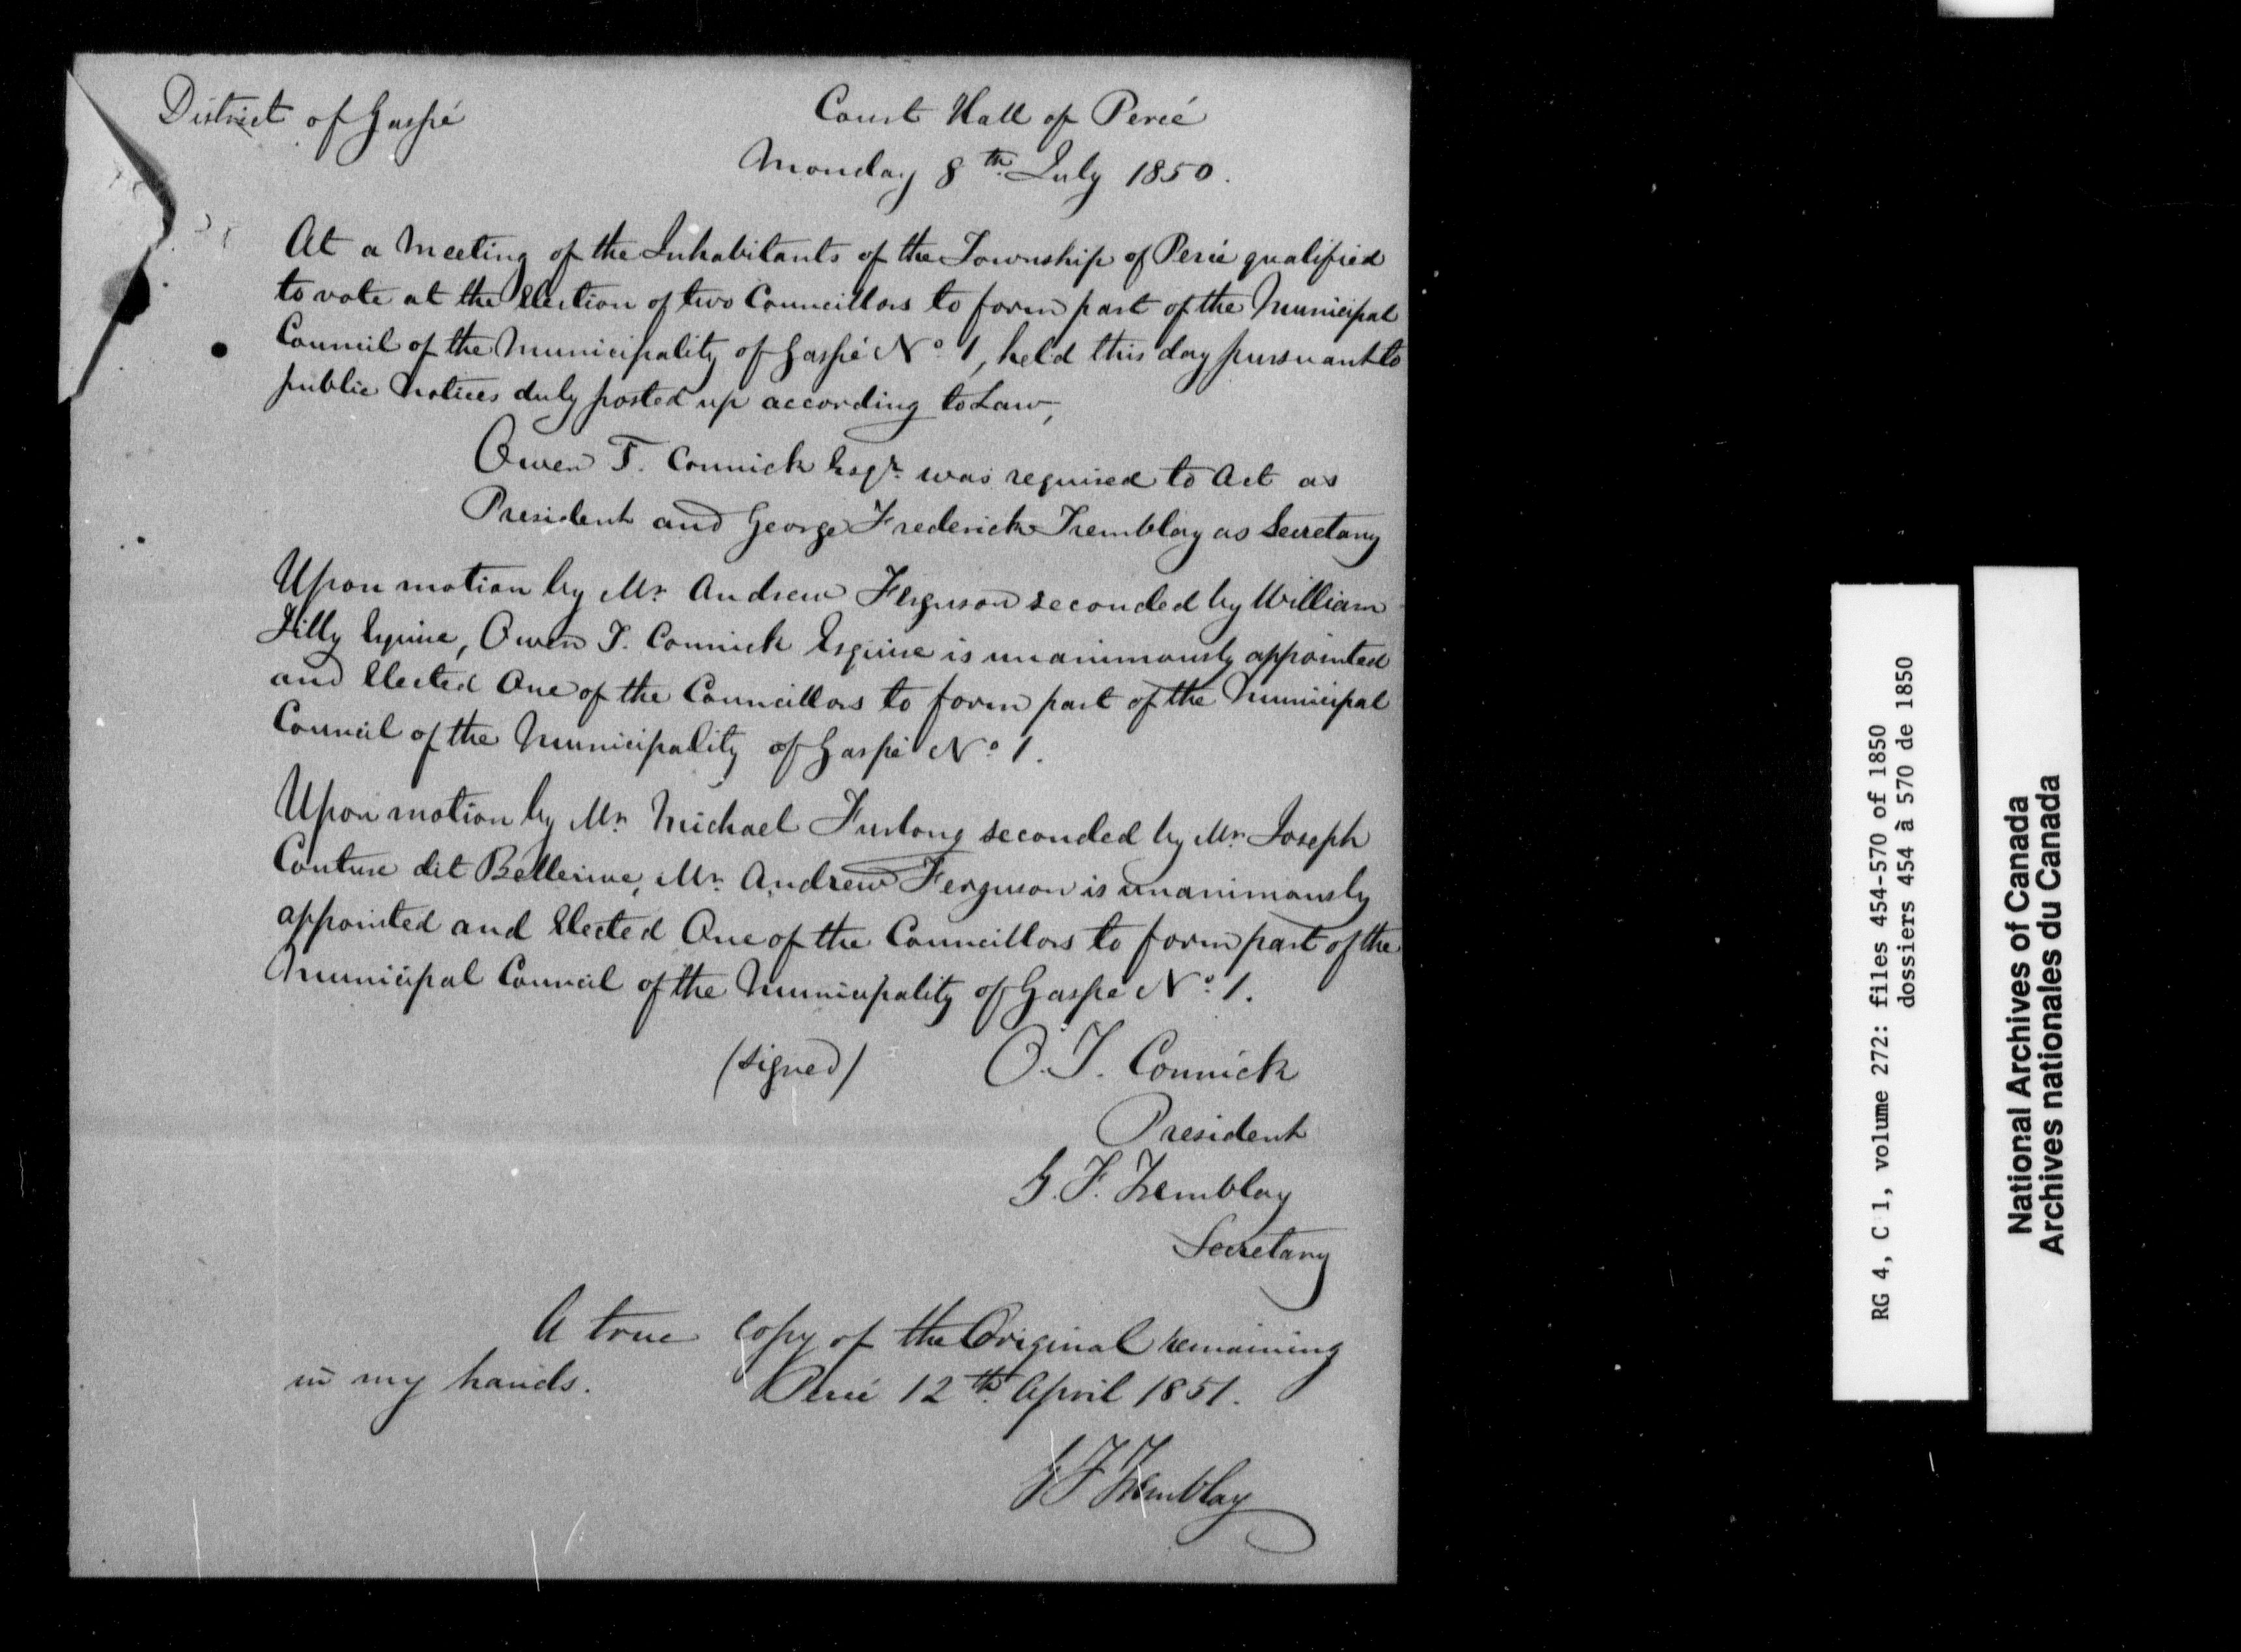 District of Gaspé
Court Hall of Percé
Monday 8th July 1850.
At a Meeting of the Inhabitants of the Township of Percé qualified
to vote at the Election of two Councillors to form part of the Municipal
Council of the Municipality of Gaspé No. 1, held this day pursuant to
public Notices duly posted up according to Law,
Owen T. Connick Esqr. was required to Act as
President and George Frederick Tremblay as Secretary
Upon motion by Mr. Andrew Ferguson seconded by William
Tilly Esquire, Owen T. Connick Esquire is unanimously appointed
and Elected One of the Councillors to form part of the Municipal
Council of the Municipality of Gaspé No. 1.
Upon motion by Mr. Michael Furlong seconded by Mr. Joseph
Couture dit Bellerive, Mr. Andrew Ferguson is unanimously
appointed and Elected One of the Councillors to form part of the
Municipal Council of the Municipality of Gaspé No. 1.
(signed) O. T. Connick
President
G. F. Tremblay
Secretary
A true Copy of the Original remaining
in my hands. Percé 12th. April 1851.
G F Tremblay
RG 4, C 1, volume 272: files 454-570 of 1850
dossiers 454 à 570 de 1850
National Archives of Canada
Archives nationales du Canada